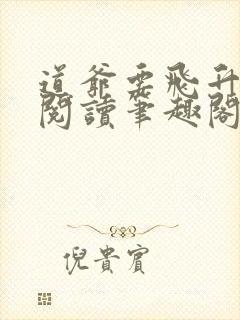 道爺要飛升
閱讀筆趣閣
倪貴賓